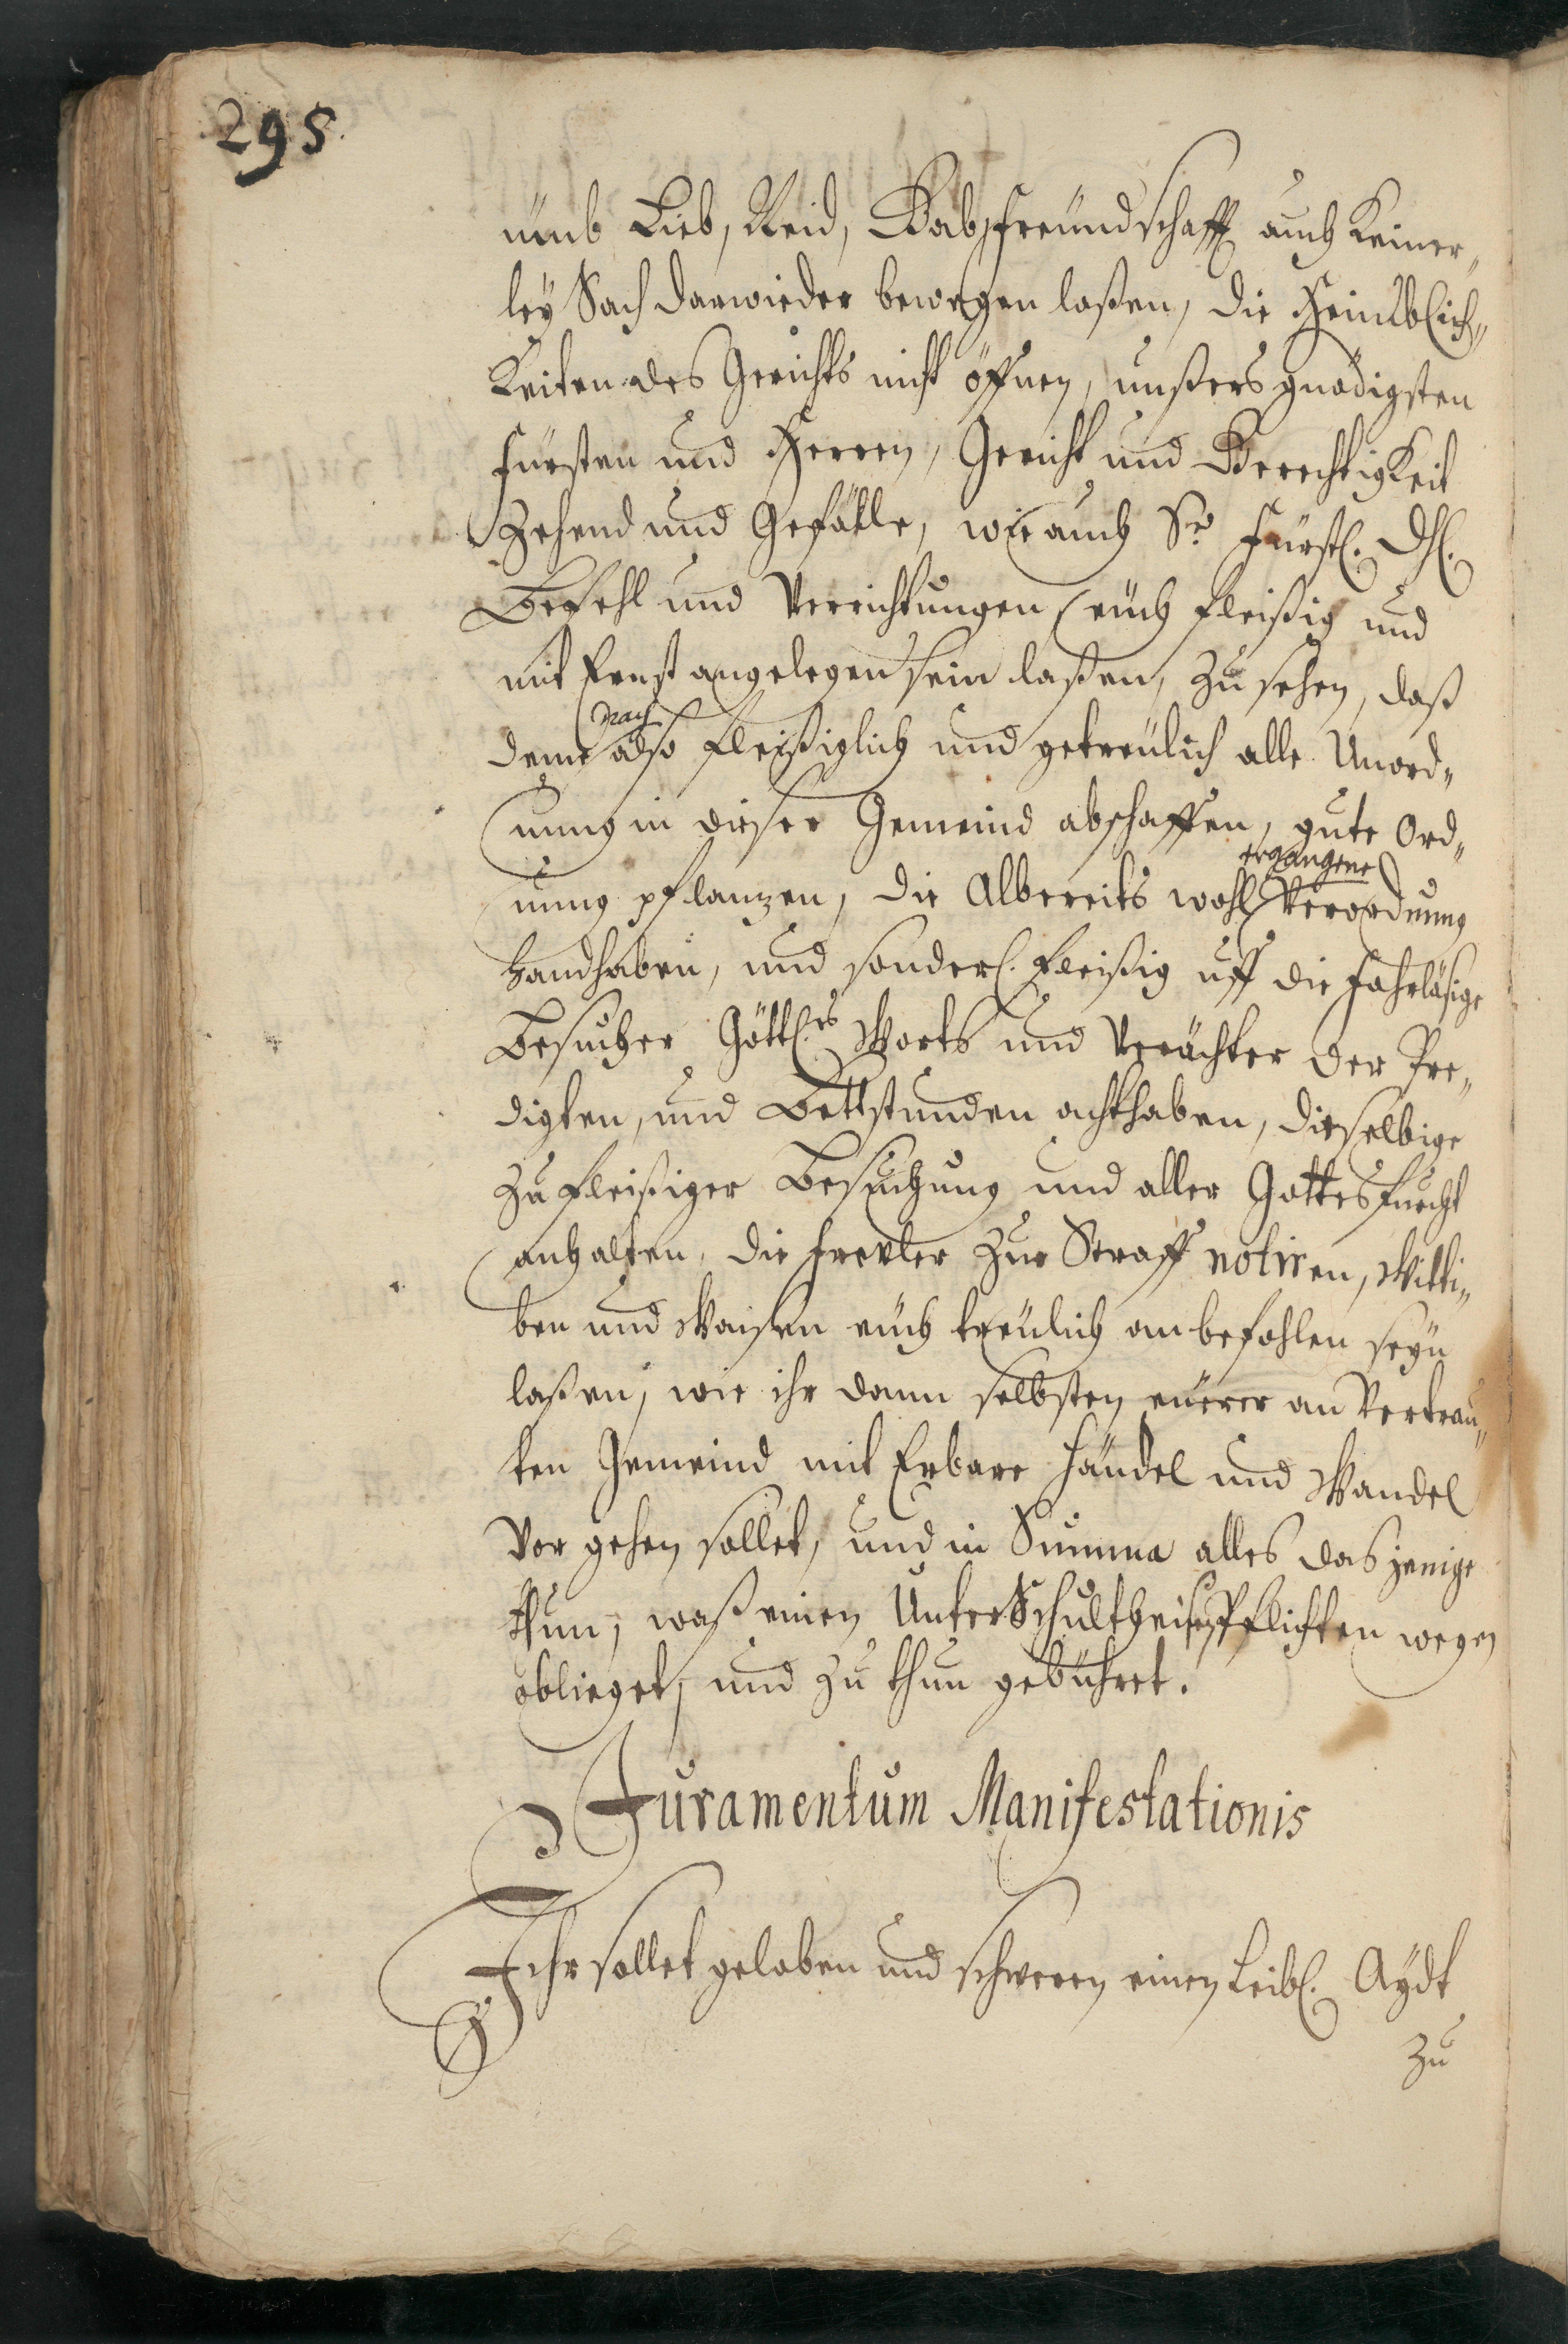 295.
umb Lieb, Neid, Gab, Freündschafft auch Keiner„
leÿ Sach darwieder bewegen laßen, die Heimblich„
Keiten des Gerichts nicht öffnen, unßers gnädigsten
Fürsten und Herren, Gericht und Gerechtigkeit
Zehend und Gefälle, wie auch Sr. Fürstl. Dhl.
Befehl und Verrichtungen eüch fleißig und
mit Ernst angelegen sein laßen, zu sehen, daß
nach
deme also fleißiglich und getreülich alle Unord„
nung in dießer Gemeind abschaffen, gute Ord„
ergangene
nung pflanzen, die Albereits wohl Verordnung
handhaben, und sonderl. fleißig uff die fahrläsige
Besucher Göttl.es Worts und Verächter der Pre„
digten, und Bettstunden achthaben, dieselbige
zu fleißiger Besuchung und aller Gottesfurcht
anhalten, die Frevler zur Straff notiren, Witti„
ben und Waisen eüch treülich anbefohlen seyn
laßen, wie ihr dann selbsten eüerer an Vertrau„
ten Gemeind mit Erbare Händel und Wandel
Vor gehen sollet, und in Summa alles das jenige
thun, waß einen UnterSchultheisen Pflichten wegen
oblieget, und zu thun gebühret.
Juramentum Manifestationis
Ihr sollet geloben und schweren einen Leibl. Aydt
zu